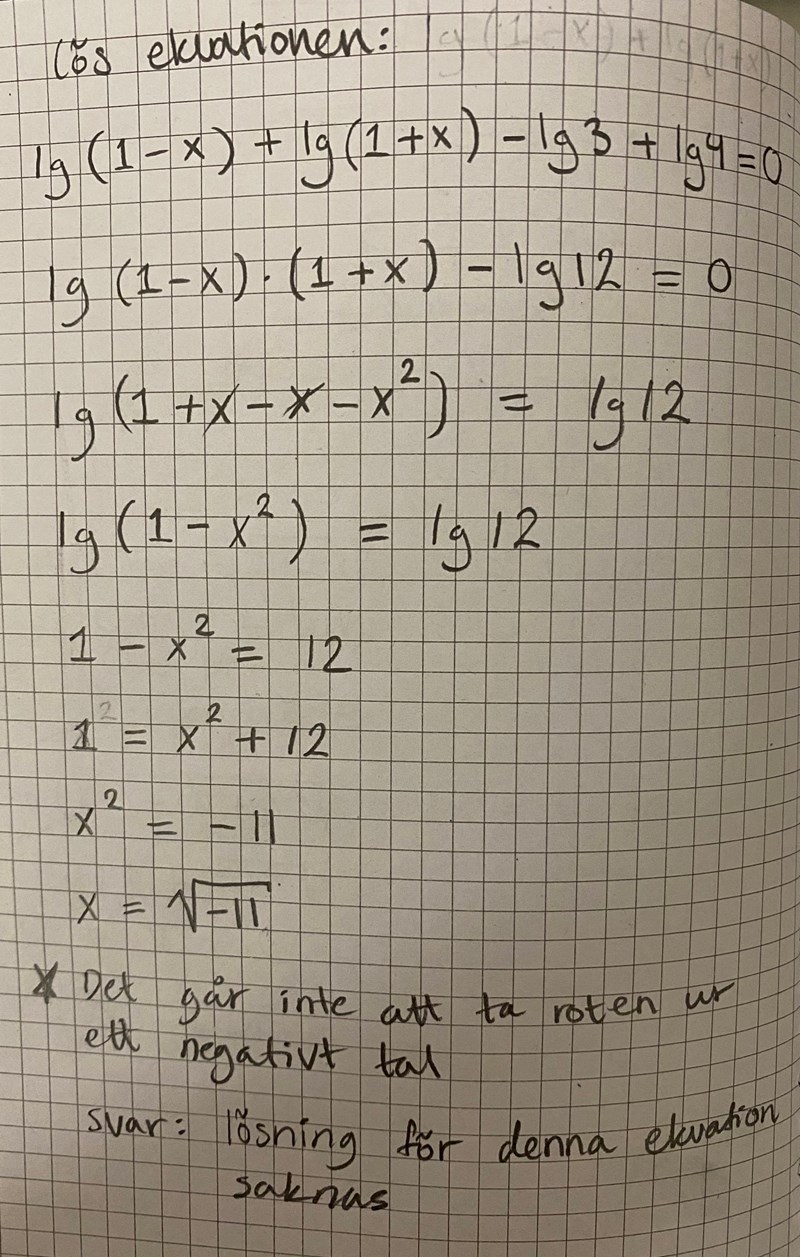 Lös ekvationen: lg (1-x) + lg (1+x)
lg (1-x) + lg (1+x) - lg 3 + lg 4 = 0
lg (1-x) · (1+x) - lg 12 = 0
lg (1 + x - x - x²) = lg 12
lg (1 - x²) = lg 12
1 - x² = 12
1² = x² + 12
x² = -11
x = √-11
* Det går inte att ta roten ur
ett negativt tal
svar: lösning för denna ekvation
saknas